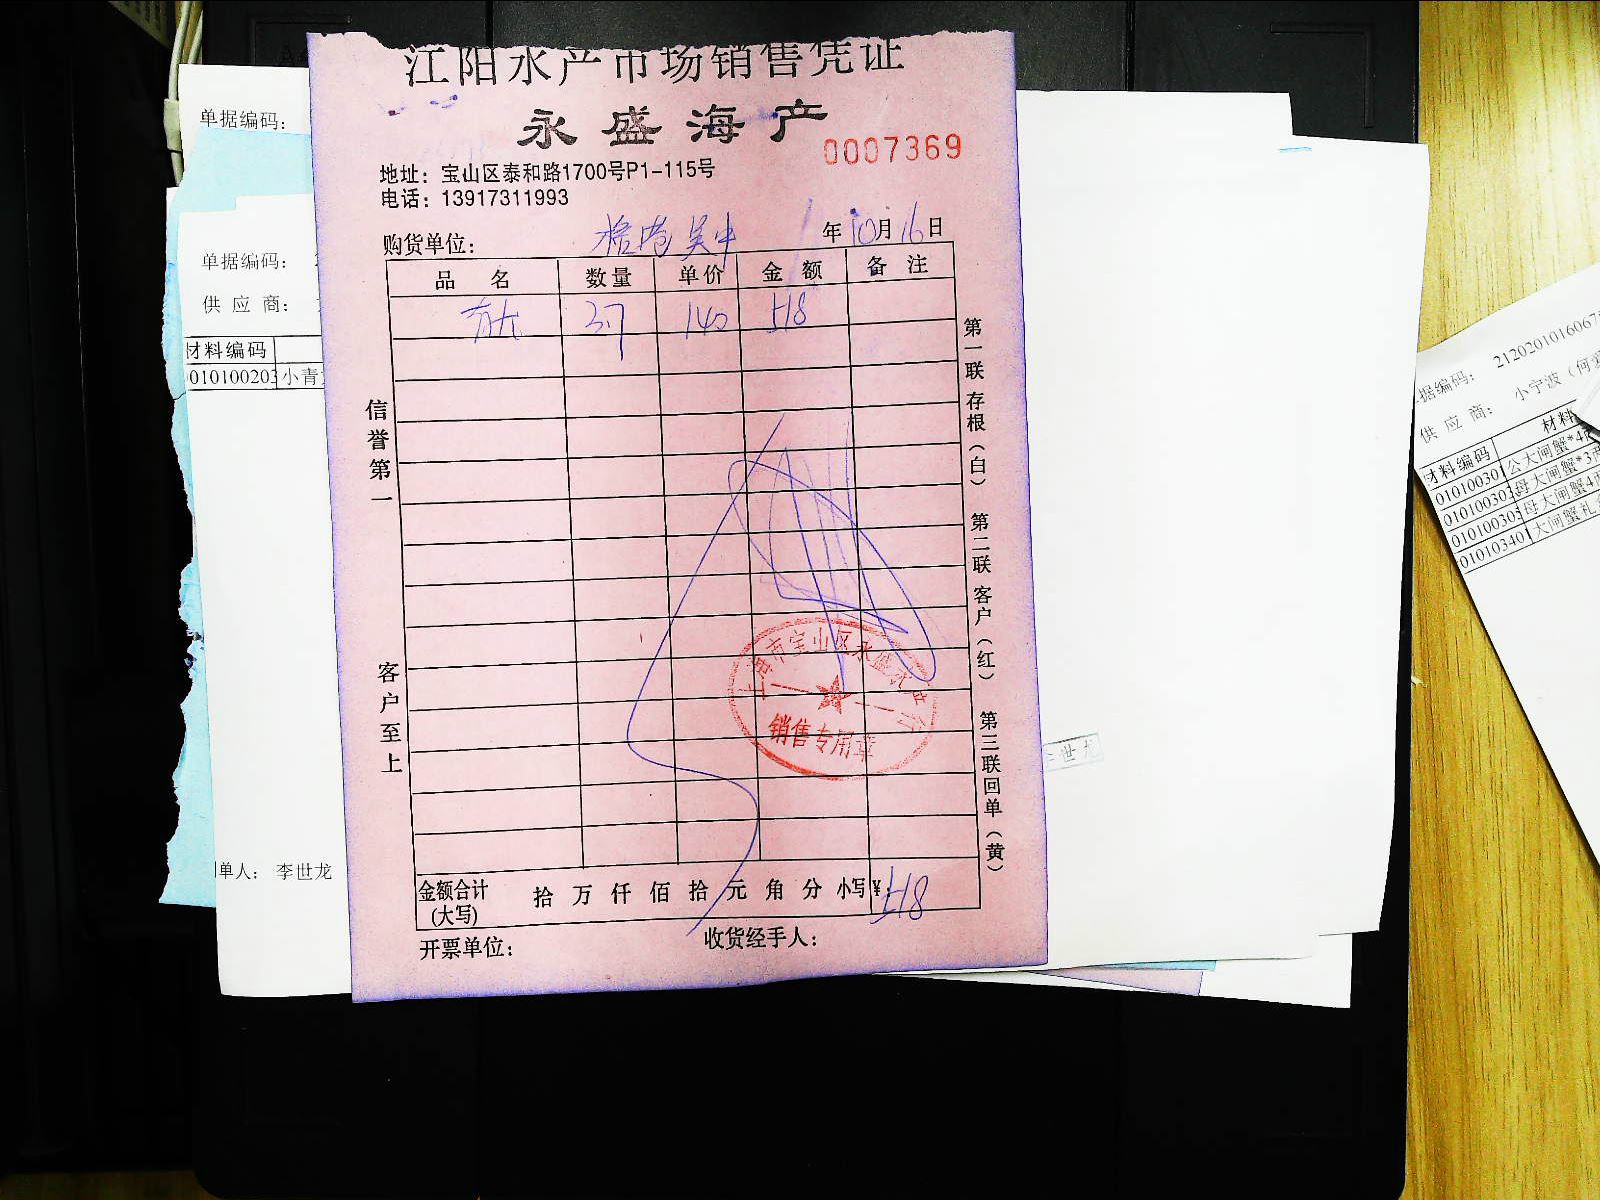 江阳水产市场销售凭证
永盛海产
0007369
地址：宝山区泰和路1700号P1-115号
电话：13917311993
购货单位： 吴中 年10月16日
品名 数量 单价 金额 备注
3.7 140 518
信誉第一
客户至上
第一联 存根（白） 第二联 客户（红） 第三联 回单（黄）
上海市宝山区永盛水产行
销售专用章
金额合计(大写) 拾 万 仟 佰 拾 元 角 分 小写¥：518
开票单位：
收货经手人：
单据编码：
单据编码：
供应商：
材料编码
010100203 小青
单人： 李世龙
李世龙
据编码： 2120201016067
供应商： 小宁波（何
材料编码 材料
010100301 公大闸蟹*4
010100302 母大闸蟹*3
010100305 母大闸蟹4
010103401 大闸蟹礼